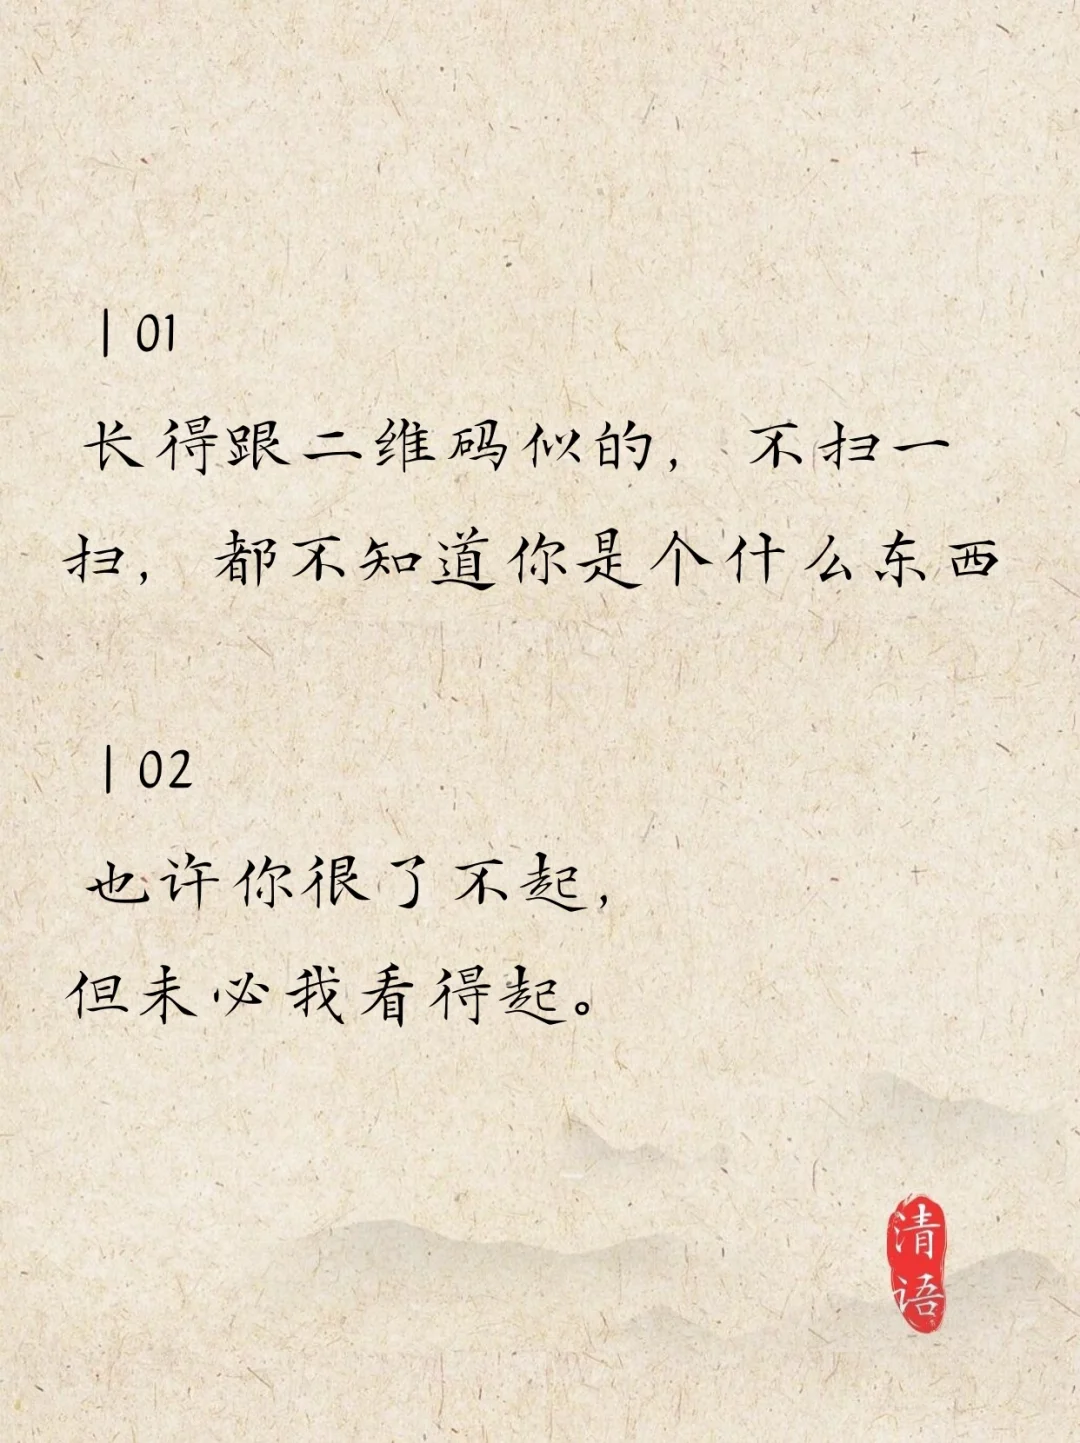 | 01
长得跟二维码似的，不扫一
扫，都不知道你是个什么东西
| 02
也许你很了不起，
但未必我看得起。
清
语